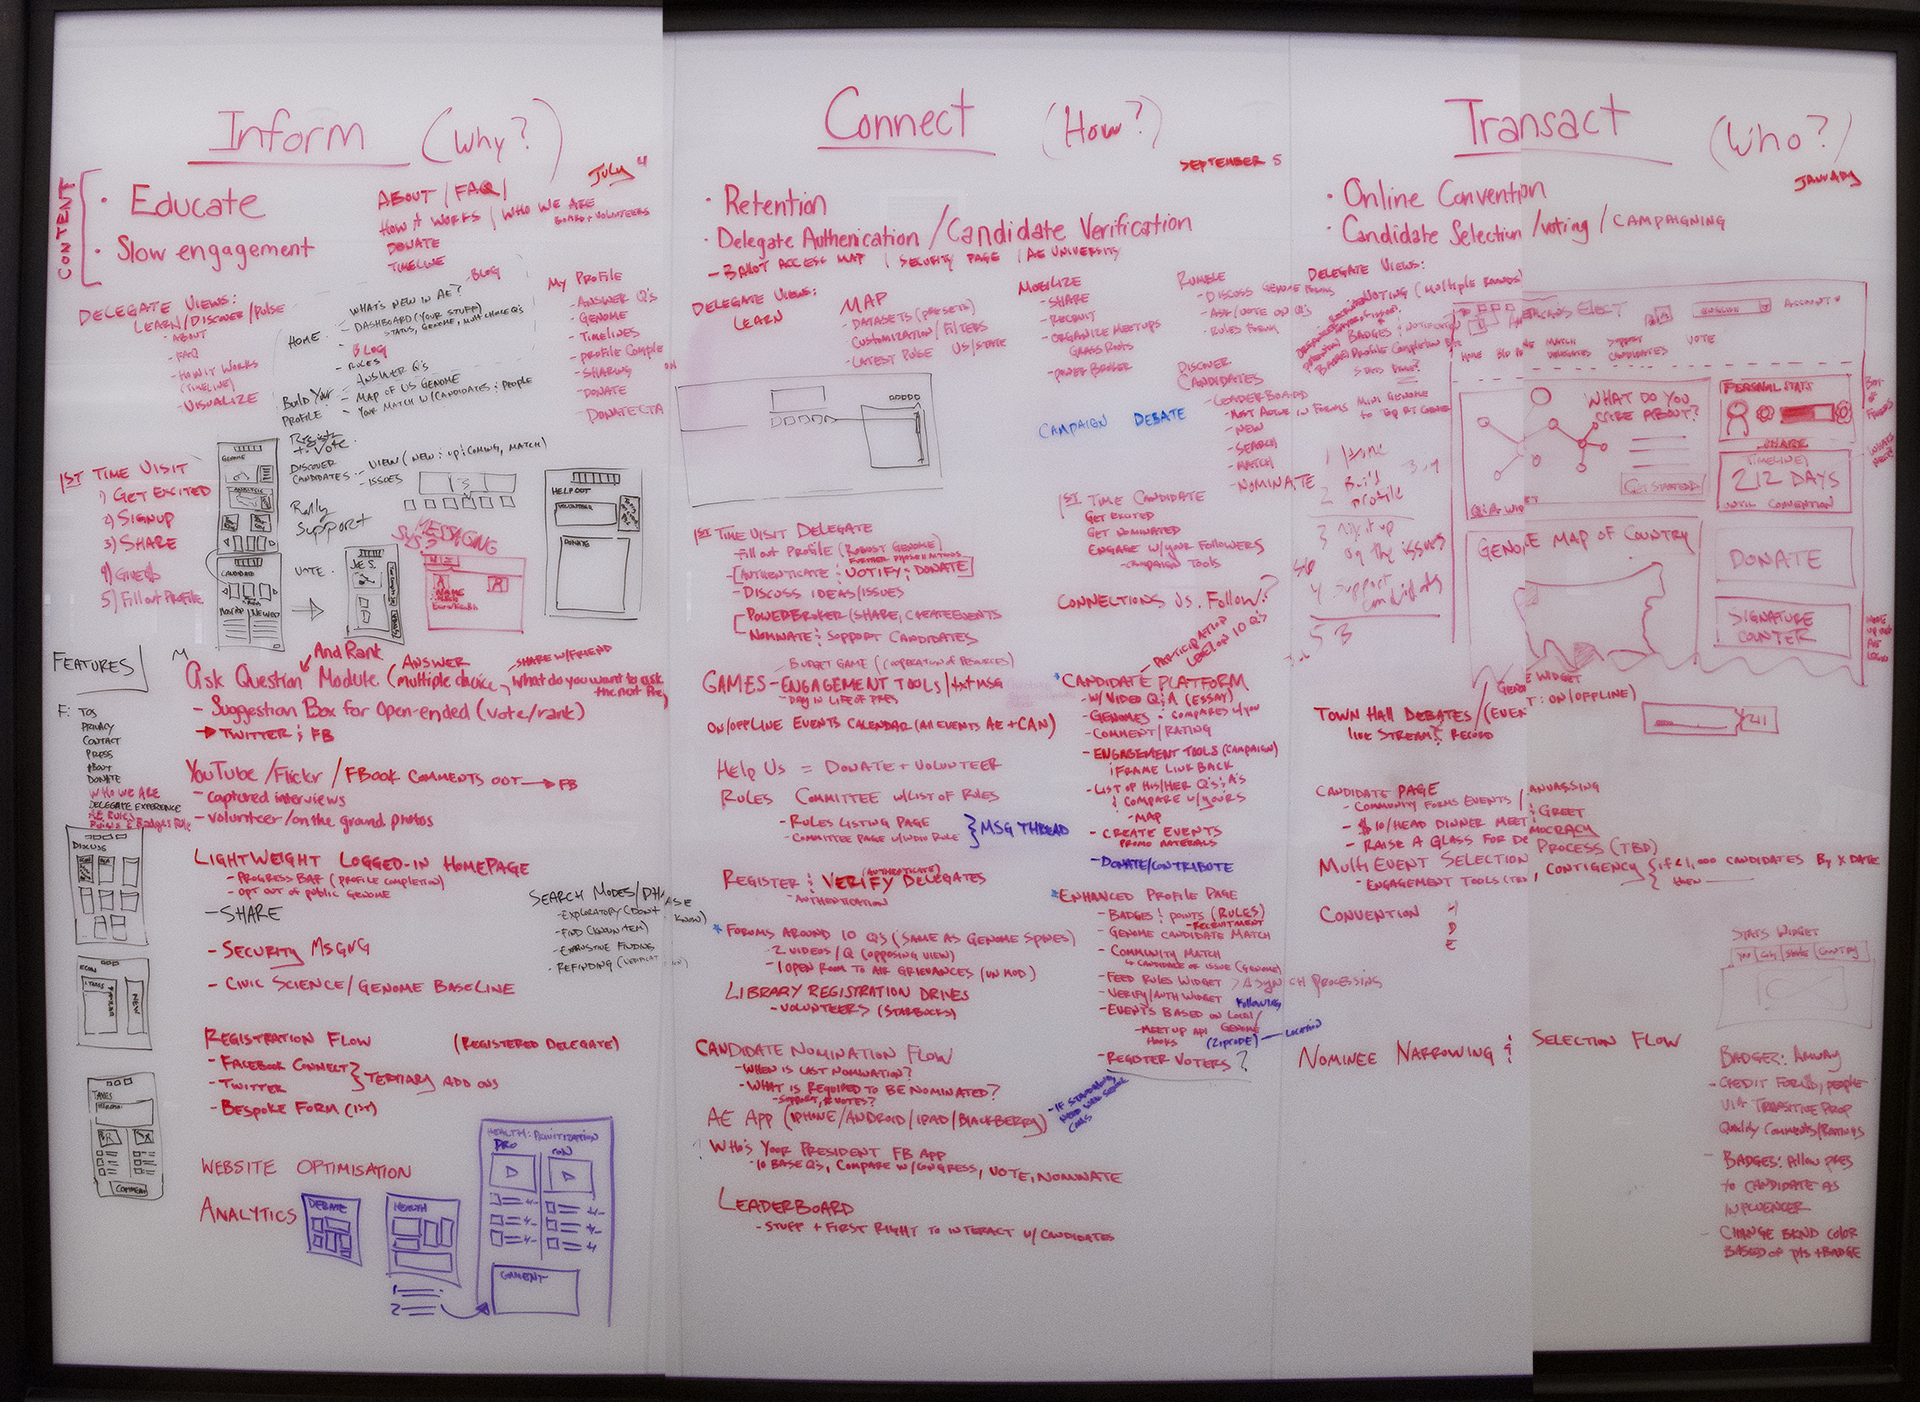 Inform (Why?)
JULY 4
CONTENT
· Educate
· Slow engagement
ABOUT / FAQ /
HOW it WORKS / WHO WE ARE
BOARD + VOLUNTEERS
DONATE
TIMELINE
- BLOG
DELEGATE VIEWS:
LEARN / DISCOVER / PULSE
- ABOUT
- FAQ
- HOW IT WORKS
(TIMELINE)
- VISUALIZE
HOME
WHAT'S NEW IN AE?
- DASHBOARD (YOUR STUFF)
STATUS, GENOME, MULTI CHOICE Q'S
- BLOG
- RULES
Build Your
PROFILE
- ANSWER Q'S
- MAP OF US GENOME
- YOUR MATCH W/CANDIDATES : PEOPLE
DISCOVER
CANDIDATES
- VIEW (NEW : UP : COMING, MATCH)
- ISSUES
Rally
Support
VOTE
My PROFILE
- ANSWER Q'S
- GENOME
- TIMELINES
- SHARING
- DONATE
- DONATE CTA
1ST TIME VISIT
1) GET EXCITED
2) SIGNUP
3) SHARE
4) GIVE $
5) Fill out PROFILE
GENOME
CANDIDATE
MESSAGING
HELP OUT
VOLUNTEER
DONATE
FEATURES
F: TOS
PRIVACY
CONTACT
PRESS
ABOUT
DONATE
WHO WE ARE
DELEGATE EXPERIENCE
DISCUSS
TAXES
COMMENT
And Rank
Ask Question Module (ANSWER multiple choice, what do you want to ask the next Pre
SHARE W/FRIEND
- Suggestion Box for Open-ended (vote/rank)
→ TWITTER : FB
YouTube / Flickr / FBOOK COMMENTS OUT → FB
- captured interviews
- volunteer / on the ground photos
LIGHTWEIGHT LOGGED-IN HOMEPAGE
- PROGRESS BAR (PROFILE COMPLETION)
- OPT OUT OF PUBLIC GENOME
- SHARE
- SECURITY MSGNG
- CIVIC SCIENCE / GENOME BASELINE
SEARCH MODES /
- EXPLORATORY (DON'T KNOW)
- FIND (KNOWN ITEM)
- EXHAUSTIVE FINDING
- REFINDING
REGISTRATION FLOW (REGISTERED DELEGATE)
- FACEBOOK CONNECT
- TWITTER } TERTIARY ADD ONS
- BESPOKE FORM (1ST)
WEBSITE OPTIMISATION
ANALYTICS
DEBATE
HEALTH
PRO
CON
Connect (How?)
SEPTEMBER 5
· Retention
· Delegate Authenication / Candidate Verification
- BALLOT ACCESS MAP / SECURITY PAGE / AE UNIVERSITY
DELEGATE VIEWS:
LEARN
MAP
- DATASETS (PRESETS)
CUSTOMIZATION / FILTERS
- LATEST PULSE US/STATE
MOBILIZE
- SHARE
- RECRUIT
- ORGANIZE MEETUPS
GRASS ROOTS
- POWER BROKER
RUMBLE
- DISCUSS GENOME FORUMS
- ASK / VOTE ON Q'S
- RULES FORUM
DISCOVER
CANDIDATES
- LEADERBOARD
- NEW
- SEARCH
- MATCH
- NOMINATE
CAMPAIGN DEBATE
1ST TIME VISIT DELEGATE
- Fill out PROFILE (ROBUST GENOME)
- [AUTHENTICATE : VOTIFY : DONATE]
- DISCUSS IDEAS/ISSUES
- POWERBROKER (SHARE, CREATE EVENTS
NOMINATE : SUPPORT CANDIDATES
1ST TIME CANDIDATE
GET EXCITED
GET NOMINATED
ENGAGE W/YOUR FOLLOWERS
- CAMPAIGN TOOLS
CONNECTIONS VS. FOLLOW?
- BUDGET GAME (COOPERATION OF RESOURCES)
GAMES - ENGAGEMENT TOOLS / txt MSG
- DAY IN LIFE OF PRES
ON/OFFLINE EVENTS CALENDAR (All EVENTS AE + CAN)
HELP US = DONATE + VOLUNTEER
RULES COMMITTEE W/LIST OF RULES
- RULES LISTING PAGE
- COMMITTEE PAGE W/INDIV RULE } MSG THREAD
REGISTER : VERIFY DELEGATES
(AUTHENTICATE)
- AUTHENTICATION
* FORUMS AROUND 10 Q'S (SAME AS GENOME SPINES)
- 2 VIDEOS / Q (OPPOSING VIEW)
- 1 OPEN ROOM TO AIR GRIEVANCES (UN MOD)
LIBRARY REGISTRATION DRIVES
- VOLUNTEERS (STARBUCKS)
CANDIDATE NOMINATION FLOW
- WHEN IS LAST NOMINATION?
- WHAT IS REQUIRED TO BE NOMINATED?
- SUPPORT, # VOTES?
AE APP (IPHONE/ANDROID/IPAD/BLACKBERRY)
WHO'S YOUR PRESIDENT FB APP
- 10 BASE Q'S, COMPARE W/CONGRESS, VOTE, NOMINATE
LEADERBOARD
- STUFF + FIRST RIGHT TO INTERACT W/ CANDIDATES
PARTICIPATION
LEVEL ON 10 Q'S
* CANDIDATE PLATFORM
- W/ VIDEO Q : A (ESSAY)
- GENOMES : COMPARES W/YOU
- COMMENT / RATING
- ENGAGEMENT TOOLS (CAMPAIGN)
iFRAME LINK BACK
- LIST OF HIS/HER Q'S : A'S
: COMPARE W/YOURS
- MAP
- CREATE EVENTS
PROMO MATERIALS
- DONATE / CONTRIBUTE
* ENHANCED PROFILE PAGE
- BADGES : POINTS (RULES)
- RECRUITMENT
- GENOME CANDIDATE MATCH
- COMMUNITY MATCH
CANDIDATE OR ISSUE (GENOME)
- FEED RULES WIDGET > ASYNCH PROCESSING
- VERIFY/AUTH WIDGET FOLLOWING
- EVENTS BASED ON LOCAL /
- MEETUP API GENOME
HOOKS (ZIPCODE) - LOCATION
- REGISTER VOTERS?
Transact (Who?)
JANUARY
· Online Convention
· Candidate Selection / voting / CAMPAIGNING
DELEGATE VIEWS:
- VOTING (MULTIPLE ROUNDS)
AMERICANS ELECT
ACCOUNT
HOME
MATCH
DELEGATES
SUPPORT
CANDIDATES
VOTE
WHAT DO YOU
CARE ABOUT?
GET STARTED
PERSONAL STATS
SHARE
TIMELINE
212 DAYS
UNTIL CONVENTION
GENOME MAP OF COUNTRY
DONATE
SIGNATURE
COUNTER
2 Build
profile
on the issues
4 support
candidates
TOWN HALL DEBATES / (EVENT : ON/OFFLINE)
LIVE STREAM : RECORD
CANDIDATE PAGE
- COMMUNITY FORMS EVENTS / CANVASSING
- $10/HEAD DINNER MEET : GREET
- RAISE A GLASS FOR DEMOCRACY
MULTI EVENT SELECTION PROCESS (TBD)
- ENGAGEMENT TOOLS , CONTIGENCY { if < 1,000 CANDIDATES BY X DATE
THEN
CONVENTION
STATS WIDGET
You City State COUNTRY
NOMINEE NARROWING : SELECTION FLOW
BADGES:
- CREDIT FOR $, PEOPLE
VIA TRANSITIVE PROP
Quality Comments/Ratings
- BADGES: Allow PRES
to CANDIDATE AS
INFLUENCER
- CHANGE BKND COLOR
BASED OF PTS + BADGE